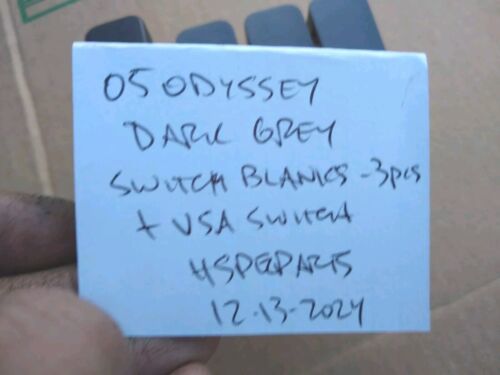 05 ODYSSEY
DARK GREY
SWITCH BLANKS -3pcs
+ VSA SWITCH
HSPGPARTS
12.13-2024